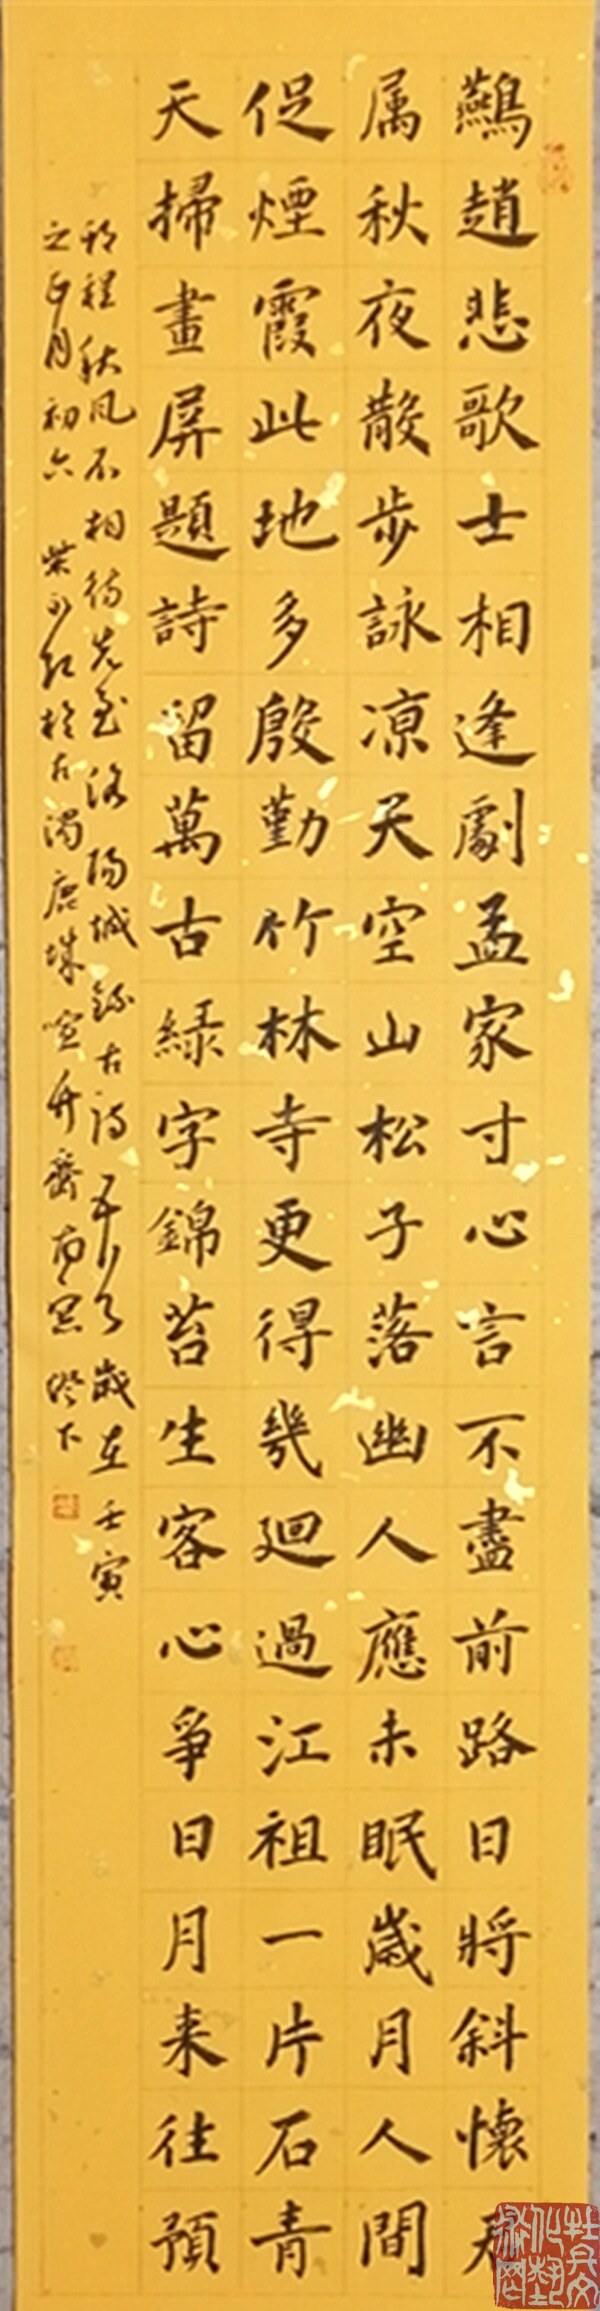 鷰趙悲歌士相逢劇孟家寸心言不盡前路日將斜懷君
属秋夜散步詠凉天空山松子落幽人應未眠歲月人間
促煙霞此地多殷勤竹林寺更得幾廻過江祖一片石青
天掃畫屏題詩留萬古綠字錦苔生客心爭日月来往預
期程秋风不相待先至洛阳城錄古诗五首歲在壬寅
之正月初六 柴永红於古濁鹿城 竹齋南窓燈下